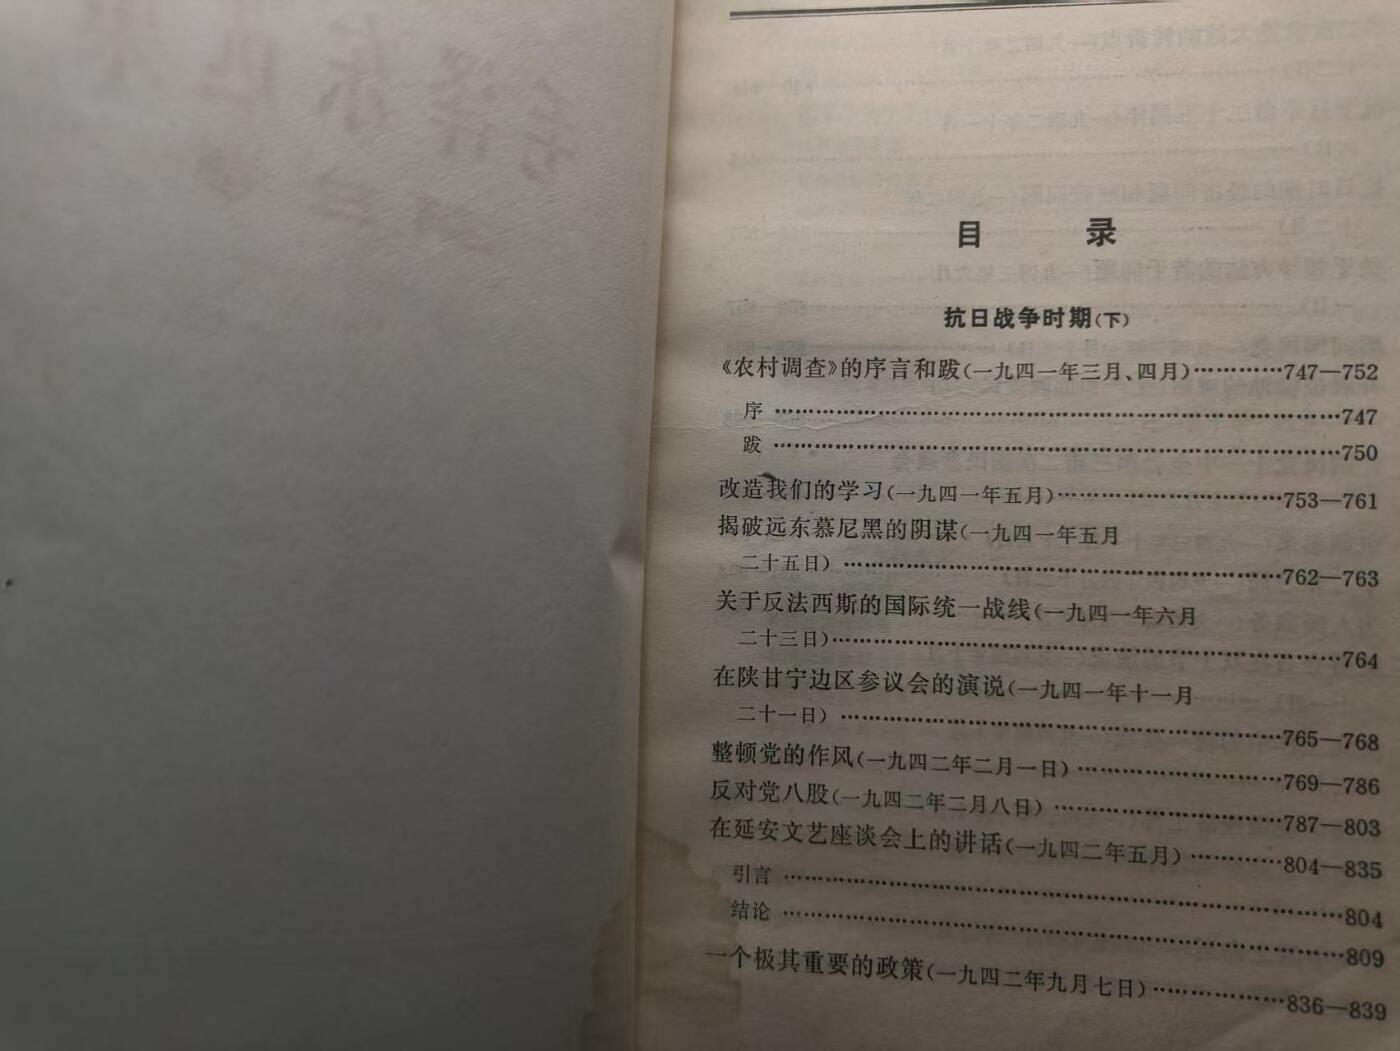 目 录
抗日战争时期(下)
《农村调查》的序言和跋(一九四一年三月、四月)…………747—752
序 ………………………………………………………………747
跋 ………………………………………………………………750
改造我们的学习(一九四一年五月)………………………753—761
揭破远东慕尼黑的阴谋(一九四一年五月
二十五日) ………………………………………………762—763
关于反法西斯的国际统一战线(一九四一年六月
二十三日)………………………………………………………764
在陕甘宁边区参议会的演说(一九四一年十一月
二十一日) ………………………………………………765—768
整顿党的作风(一九四二年二月一日) ……………………769—786
反对党八股(一九四二年二月八日) ………………………787—803
在延安文艺座谈会上的讲话(一九四二年五月) …………804—835
引言 ……………………………………………………………804
结论 ……………………………………………………………809
一个极其重要的政策(一九四二年九月七日)……………836—839